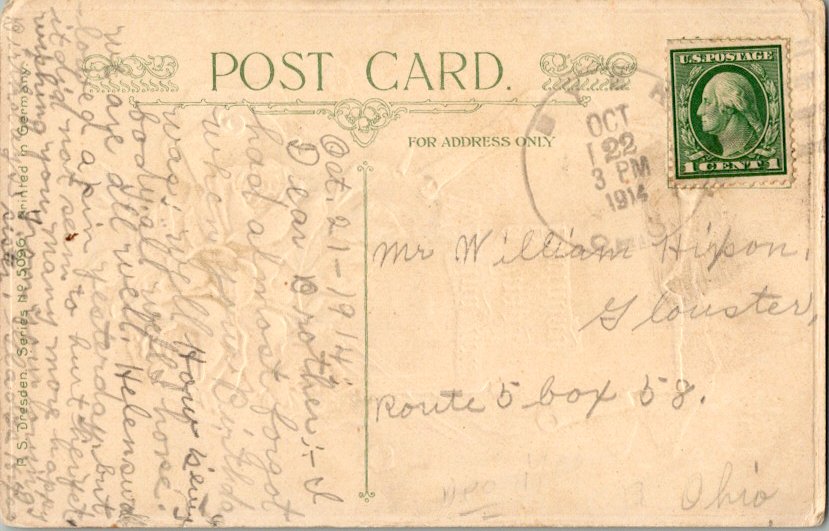 POST CARD.
FOR ADDRESS ONLY
U.S. POSTAGE
1 CENT 1
OCT
22
3 PM
1914
Mr William Hipson,
Glouster,
Route 5 box 58.
Ohio
Oct. 21-1914
Dear Brother:- I
had almost forgot
when your Birthda
was. Well How is ever
body all well I hope.
we are all well. Helen swal
lowed a pin yesterday but
it did not seem to hurt her yet
wishing you many more happy
P. S. Dresden. Series No 5096. Printed in Germany.